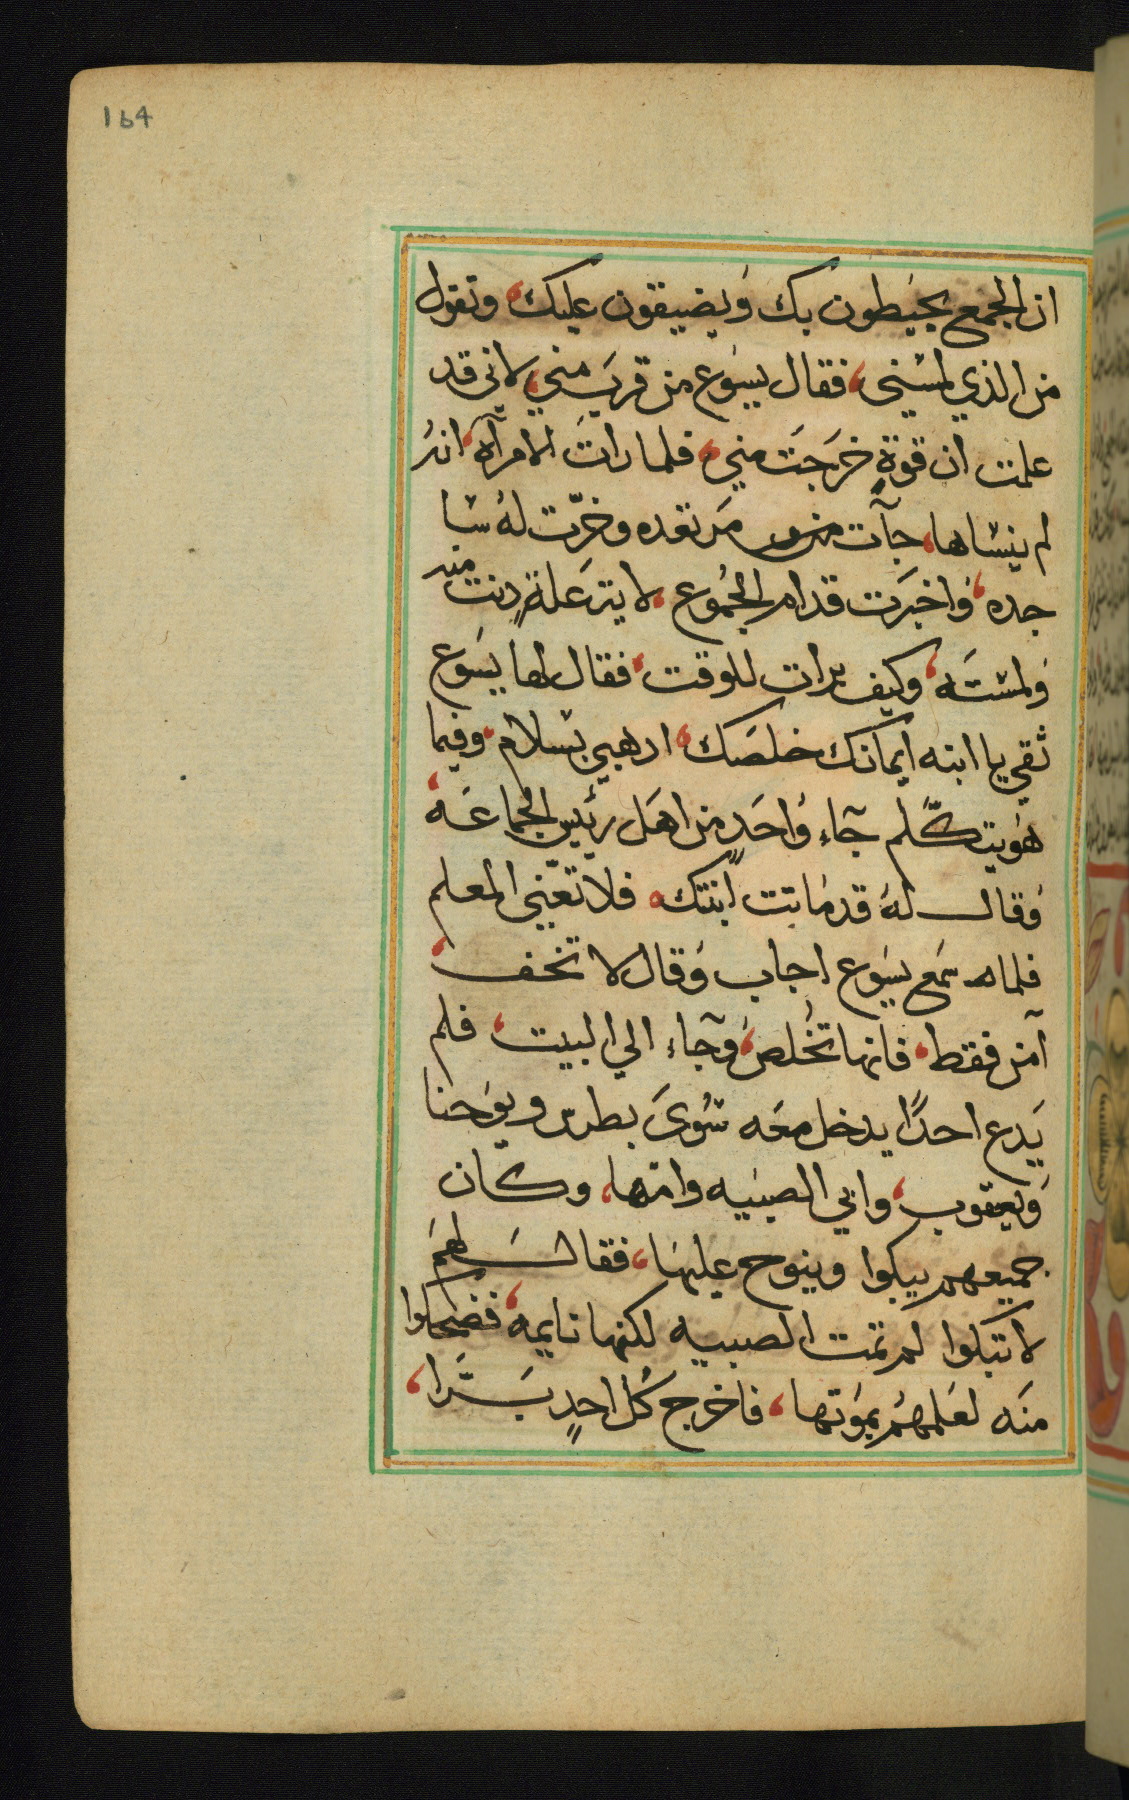 164
ان الجمع يحيَطون بك وَيضيقون عليك، وتقول
من الذي لمسَني، فقال يسَوع من قربَ مني، لاني قد
علمت ان قوةٍ خرَجَت مني، فلما راتَ الامرآه، انهُ
لم ينسَاها، جآت من مَرتعده وخرّت لهُ سَا
جده، وَاخبرَت قدام الجمُوع، لاية عَلةٍ دنت منه
وَلمسَته، وكيف برات للوقت، فقال لها يسَوع
ثقي يا ابنه ايمانك خلصَك، اذهبي بسَلام، وفيما
هوَيتكلّم جآء وَاحَد من اهَل رئيس الجماعَه،
وَقال لهُ قد مَاتت اٍبنتك، فلا تعّني المعلم
فلما سَمع يسَوع اجاب وَقال لا تخف،
آمن فقط، فانها تخُلص، وَجآء الي البيت، فلم
يَدع احدًا يدخل معَه سَوىَ بطرس ويوَحنا
وَيعقوب، وابي الصبيَه وامّها، وكان
جميعهم يبكوا وينوح عليهَا، فقال لهَم
لا تبكوا لم تمت الصبيه لكنها نايمه، فضحكوا
منَه لعَلمهُم بموَتها، فاخرج كُل احدٍ بَرَّا،